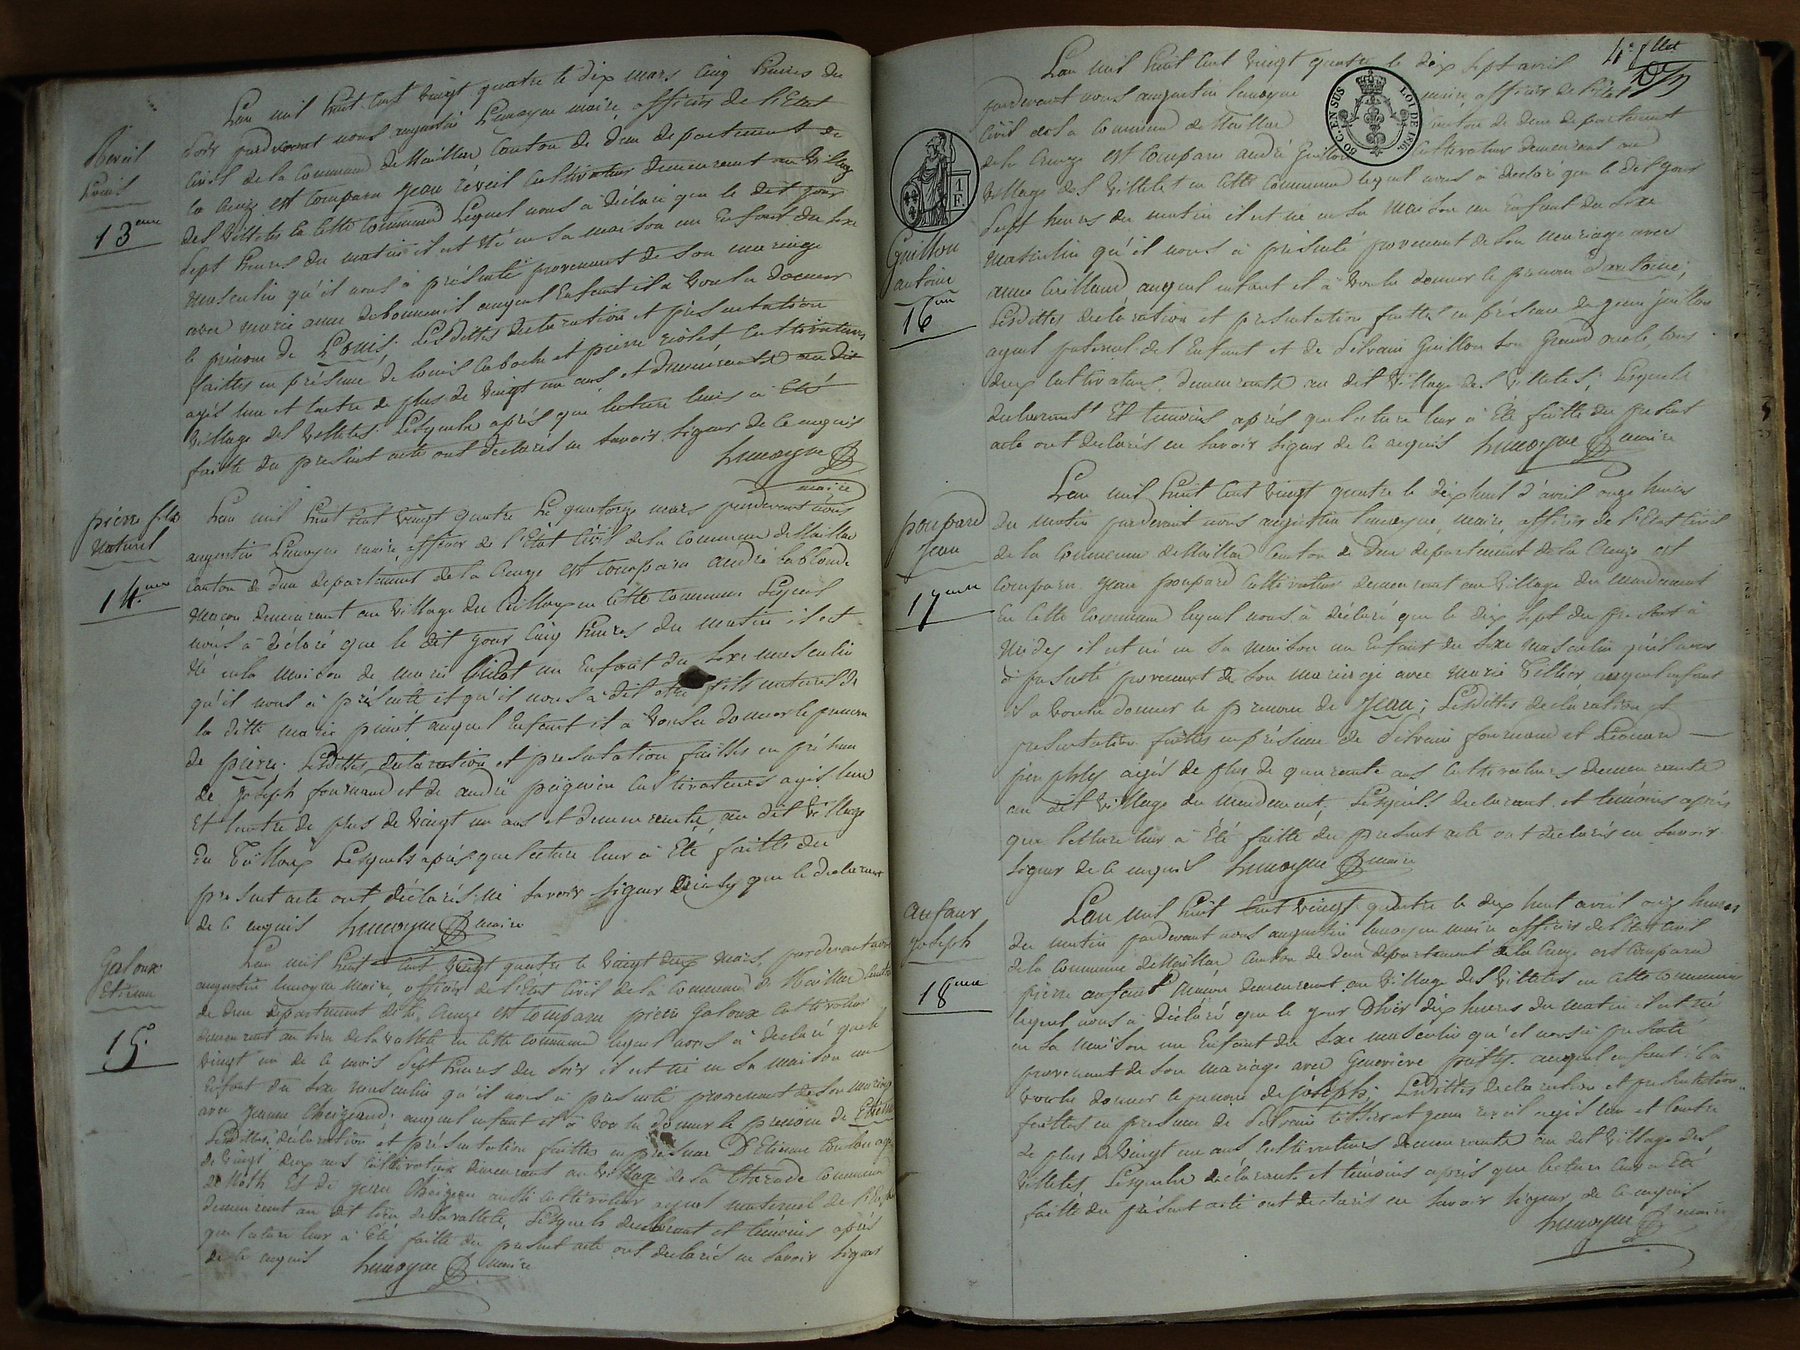 Reveil
Louis
13eme
L'an mil huit cent vingt quatre le dix mars cinq heures du
soir pardevant nous augustin Lemoyne maire, officier de l'Etat
Civil de la Commune de Maillac Canton de Dun departement de
la Creuze est Comparu jean réveil cultivateur demeurant au Village
des Villetes en Cette Commune Lequel nous a déclaré que le dit jour
Sept heures du matin il est Né en sa maison un Enfant du sexe
masculin qu'il nous à présenté provenant de son mariage
avec marie anne auquel Enfant il a Voulu donner
le prénom de Louis. Lesdittes declaration et présentation
faittes en présence de Louis et pierre Cultivateurs
agés lun et lautre de plus de Vingt un ans, et demeurants au dit
Village des Villetes. Lesquels après que lecture leurs a Eté
faitte du présent acte ont declarés ne Savoir Signer de Ce enquis
Lemoyne
maire
pierre fils
Naturel
14eme
L'an mil huit cent Vingt quatre Le quatorze mars pardevant nous
augustin Lemoyne maire, officier de l'Etat Civil de la Commune de Maillac
Canton de Dun departement de la Creuze est Comparu andré Lablonde
Maçon demeurant au Village du en Cette Commune Lequel
nous à Déclaré que le dit jour Cinq heures du matin il est
Né en la maison de marie un Enfant du Sexe masculin
qu'il nous à présenté et qu'il nous a dit etre fils naturel de
la ditte marie auquel Enfant il a Voulu donner le prenom
de pierre. Lesdittes declaration et presentation faittes en présence
de joseph fournaud et de andré Cultivateurs agés lun
Et lautre de plus de Vingt un ans et demeurants, au dit Village
du Lesquels après que lecture leur à Eté, faitte du
present acte ont déclarés ne Savoir Signer ainsy que le declarant
de Ce enquis Lemoyne maire
Galoux
Etienne
15.
L'an mil huit Cent Vingt quatre le Vingt deux Mars, pardevant nous
augustin Lemoyne Maire, officier de l'Etat Civil de la Commune de Maillac Canton
de Dun departement de la Creuze est Comparu pierre Galoux Cultivateur
demeurant au lieu de la Vallette en Cette Commune Lequel nous à Déclaré que le
Vingt un de Ce mois Sept heures du Soir il est né en Sa maison un
Enfant du Sexe masculin qu'il nous à présenté provenant de Son mariage
avec jeanne auquel enfant il à Voulu donner le prenom de Etienne
Lesdittes, déclaration et présentation faittes en présence D'Etienne agé
de Vingt deux ans Cultivateur demeurant au Village de la Commune
de Noth Et de jean aussi Cultivateur ayeul maternel de
demeurant au dit lieu de la vallette, Lesquels declarant et témoins après
que lecture leur à Eté faitte du present acte ont declarés ne Savoir Signer
de Ce enquis Lemoyne maire
4e fllet
L'an mil huit Cent Vingt quatre le dix Sept avril
pardevant nous augustin Lemoyne maire, officier de l'Etat
Civil de la Commune de Maillac Canton de Dun departement
de la Creuze est Comparu andré Guillon Cultivateur demeurant au
Village des Villetes en Cette Commune lequel nous a déclaré que le dit jour
Sept heures du matin il est né en Sa Maison un Enfant du Sexe
Masculin qu'il nous à présenté provenant de Son mariage avec
anne auquel enfant il à Voulu donner le prenom d'antoine;
Lesdittes declaration et presentation faittes en présence de jean Guillon
ayeul paternel de l'Enfant et de Silvain Guillon Son Grand oncle, tous
deux Cultivateurs, demeurants au dit Village des Villetes; Lesquels
declarant Et temoins après que lecture leur à Eté faitte du present
acte ont declarés ne Savoir Signer de Ce enquis Lemoyne maire
50 C. EN SUS
LOI DE 1816
1 F.
Guillon
antoine
16eme
poupard
jean
17eme
L'an mil huit Cent Vingt quatre le dix huit d'avril onze heures
du Matin pardevant nous augustin Lemoyne, maire, officier de l'Etat Civil
de la Commune de Maillac Canton de Dun departement de la Creuze est
Comparu jean poupard Cultivateur demeurant au Village du
En Cette Commune lequel nous à déclaré que le dix Sept du present à
Midy il est né en Sa maison un Enfant du Sexe masculin qu'il nous
à présenté provenant de Son mariage avec Marie Tillier auquel enfant
il a Voulu donner le prenom de Jean; Lesdittes declaration et
presentation faittes en présence de Silvain fournaud et Léonard
agés de plus de quarente ans Cultivateurs demeurants
au dit Village du Lesquels declarant, et témoins après
que lecture leur à Eté faitte du present acte ont declarés ne Savoir
Signer de Ce enquis Lemoyne maire
aufaur
joseph
18eme
L'an mil huit Cent Vingt quatre le dix huit avril onze heures
du matin pardevant nous augustin Lemoyne maire officier de l'Etat Civil
de la Commune de Maillac Canton de Dun departement de la Creuze est Comparu
pierre demeurant au Village des Villetes en Cette Commune
lequel nous à Déclaré que le jour D'hier dix heures du matin il est né
en Sa Maison un Enfant du Sexe masculin qu'il nous à présenté
provenant de Son mariage avec Geneviève auquel enfant il a
Voulu donner le prenom de joseph. Lesdittes declaration et presentation
faittes en presence de Silvain et jean reveil agés lun et lautre
de plus de Vingt un ans Cultivateurs demeurants au dit Village des
Villetes, Lesquels déclarants et témoins après que lecture leur à Eté
faitte du présent acte ont declarés ne Savoir Signer, de Ce enquis
Lemoyne maire